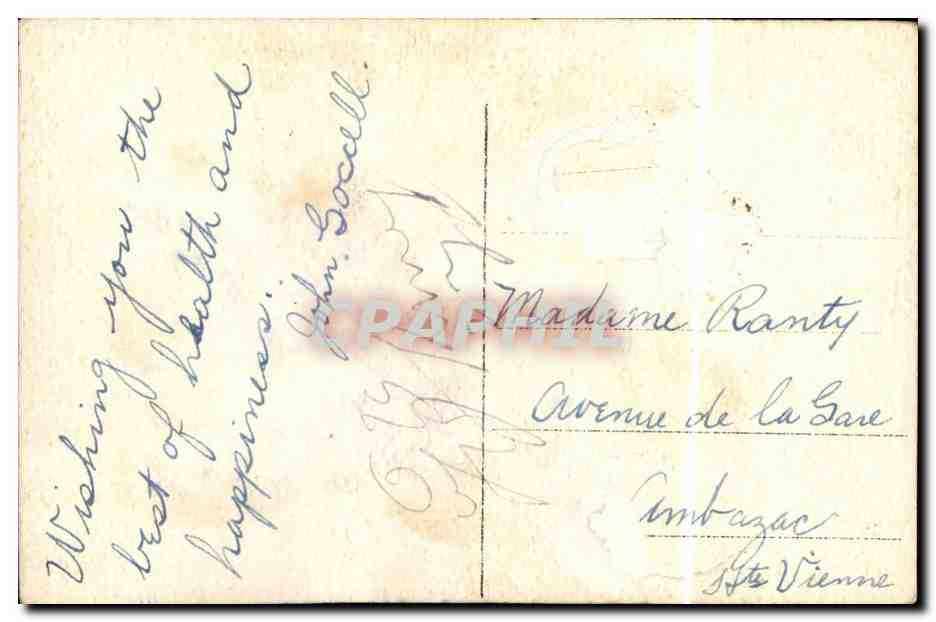 Wishing you the
best of health and
happiness.
John. Gocell.
CPAPHIL
Madame Ranty
Avenue de la Gare
Ambazac
Hte Vienne